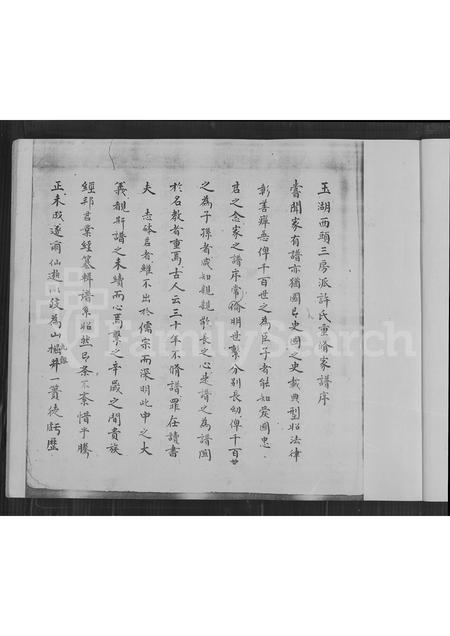 玉湖西頭三房派許氏重脩家譜序
嘗聞家有譜亦猶國有史國之史載典型昭法律
彰善癉惡俾千百世之為臣子者能知愛國忠
君之念家之譜序常倫明世繫分別長幼俾千百世
之為子孫者咸知親親敬長之心是譜之為譜國
於名教者重焉古人云三十年不脩譜罪在讀書
夫 志 君者維不出於儒宗而深明此中之大
義覩斯譜之未續而心焉繫之辛歲之間貴族
經邦君業經纂輯譜 昭然 不紊惜乎騰
正未成遂爾仙逝 為山九仞掘井一簣徒虧歷
FamilySearch